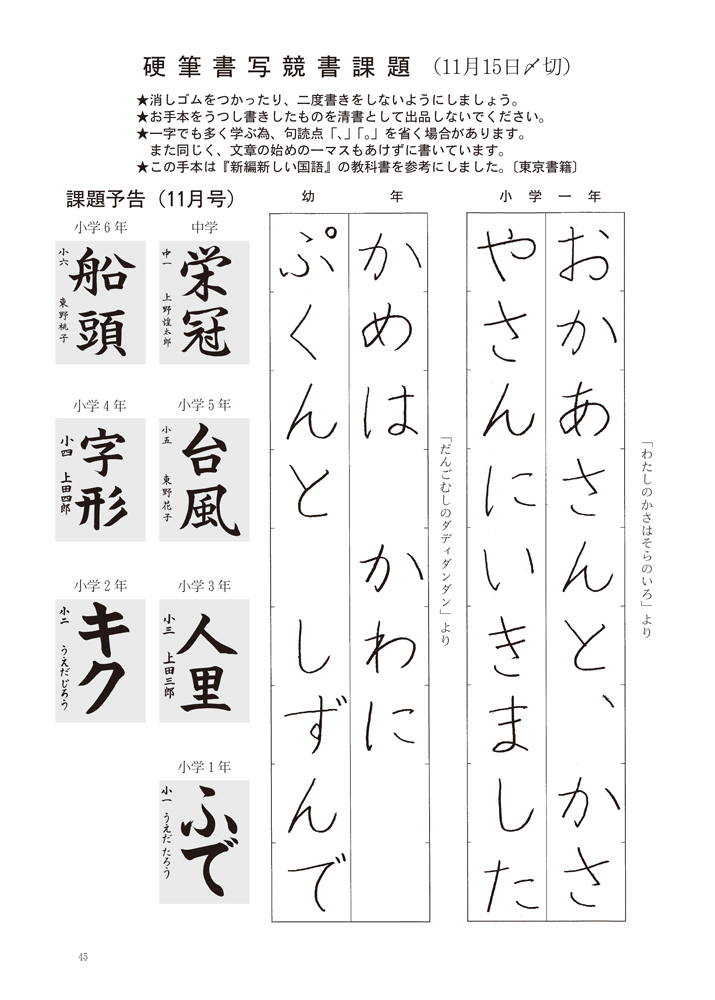 硬筆書写競書課題 （11月15日〆切）
★消しゴムをつかったり、二度書きをしないようにしましょう。
★お手本をうつし書きしたものを清書として出品しないでください。
★一字でも多く学ぶ為、句読点「、」「。」を省く場合があります。
また同じく、文章の始めの一マスもあけずに書いています。
★この手本は『新編新しい国語』の教科書を参考にしました。〔東京書籍〕
小学一年
おかあさんと、かさ
やさんにいきました
「わたしのかさはそらのいろ」より
幼年
かめは かわに
ぷくんと しずんで
「だんごむしのダディダンダン」より
課題予告（11月号）
中学
栄冠
中一 上野煌太郎
小学6年
船頭
小六 東野桃子
小学5年
台風
小五 東野花子
小学4年
字形
小四 上田四郎
小学3年
人里
小三 上田三郎
小学2年
キク
小二 うえだじろう
小学1年
ふで
小一 うえだたろう
45